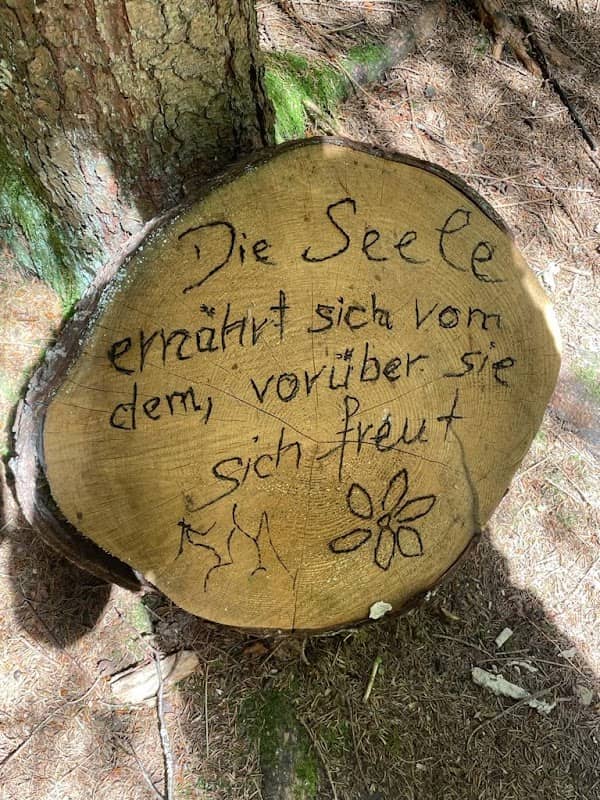 Die Seele
ernährt sich vom
dem, vorüber sie
sich freut